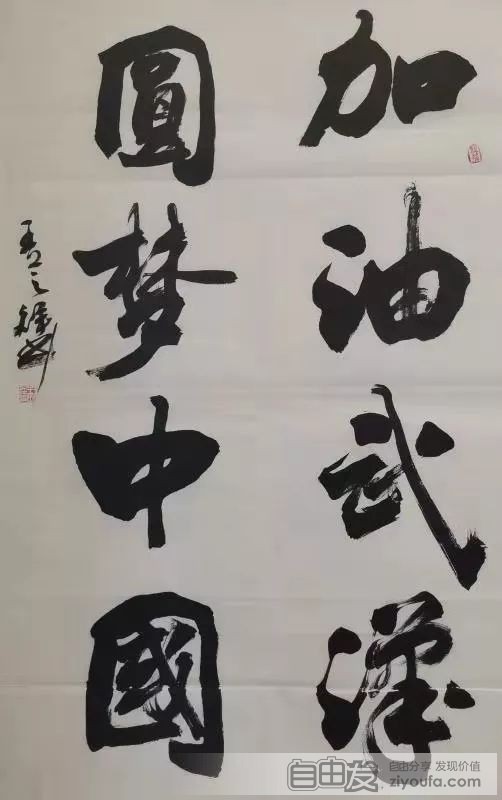 加油武漢
圓梦中國
自由发
自由分享 发现价值
ziyoufa.com